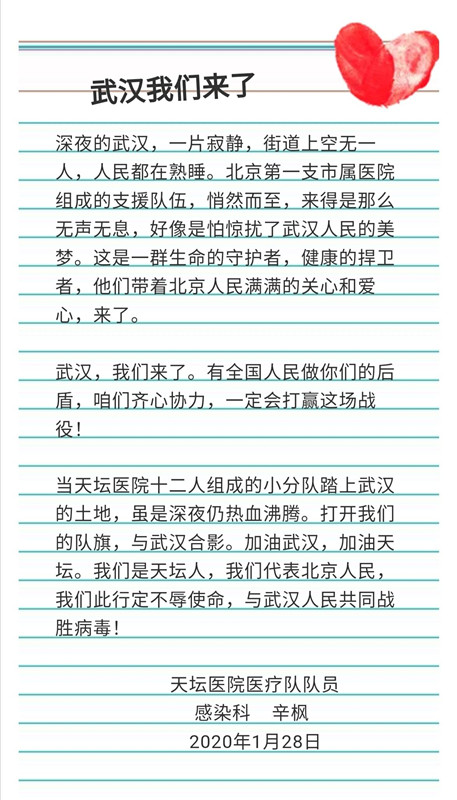 武汉我们来了
深夜的武汉，一片寂静，街道上空无一
人，人民都在熟睡。北京第一支市属医院
组成的支援队伍，悄然而至，来得是那么
无声无息，好像是怕惊扰了武汉人民的美
梦。这是一群生命的守护者，健康的捍卫
者，他们带着北京人民满满的关心和爱
心，来了。
武汉，我们来了。有全国人民做你们的后
盾，咱们齐心协力，一定会打赢这场战
役！
当天坛医院十二人组成的小分队踏上武汉
的土地，虽是深夜仍热血沸腾。打开我们
的队旗，与武汉合影。加油武汉，加油天
坛。我们是天坛人，我们代表北京人民，
我们此行定不辱使命，与武汉人民共同战
胜病毒！
天坛医院医疗队队员
感染科 辛枫
2020年1月28日